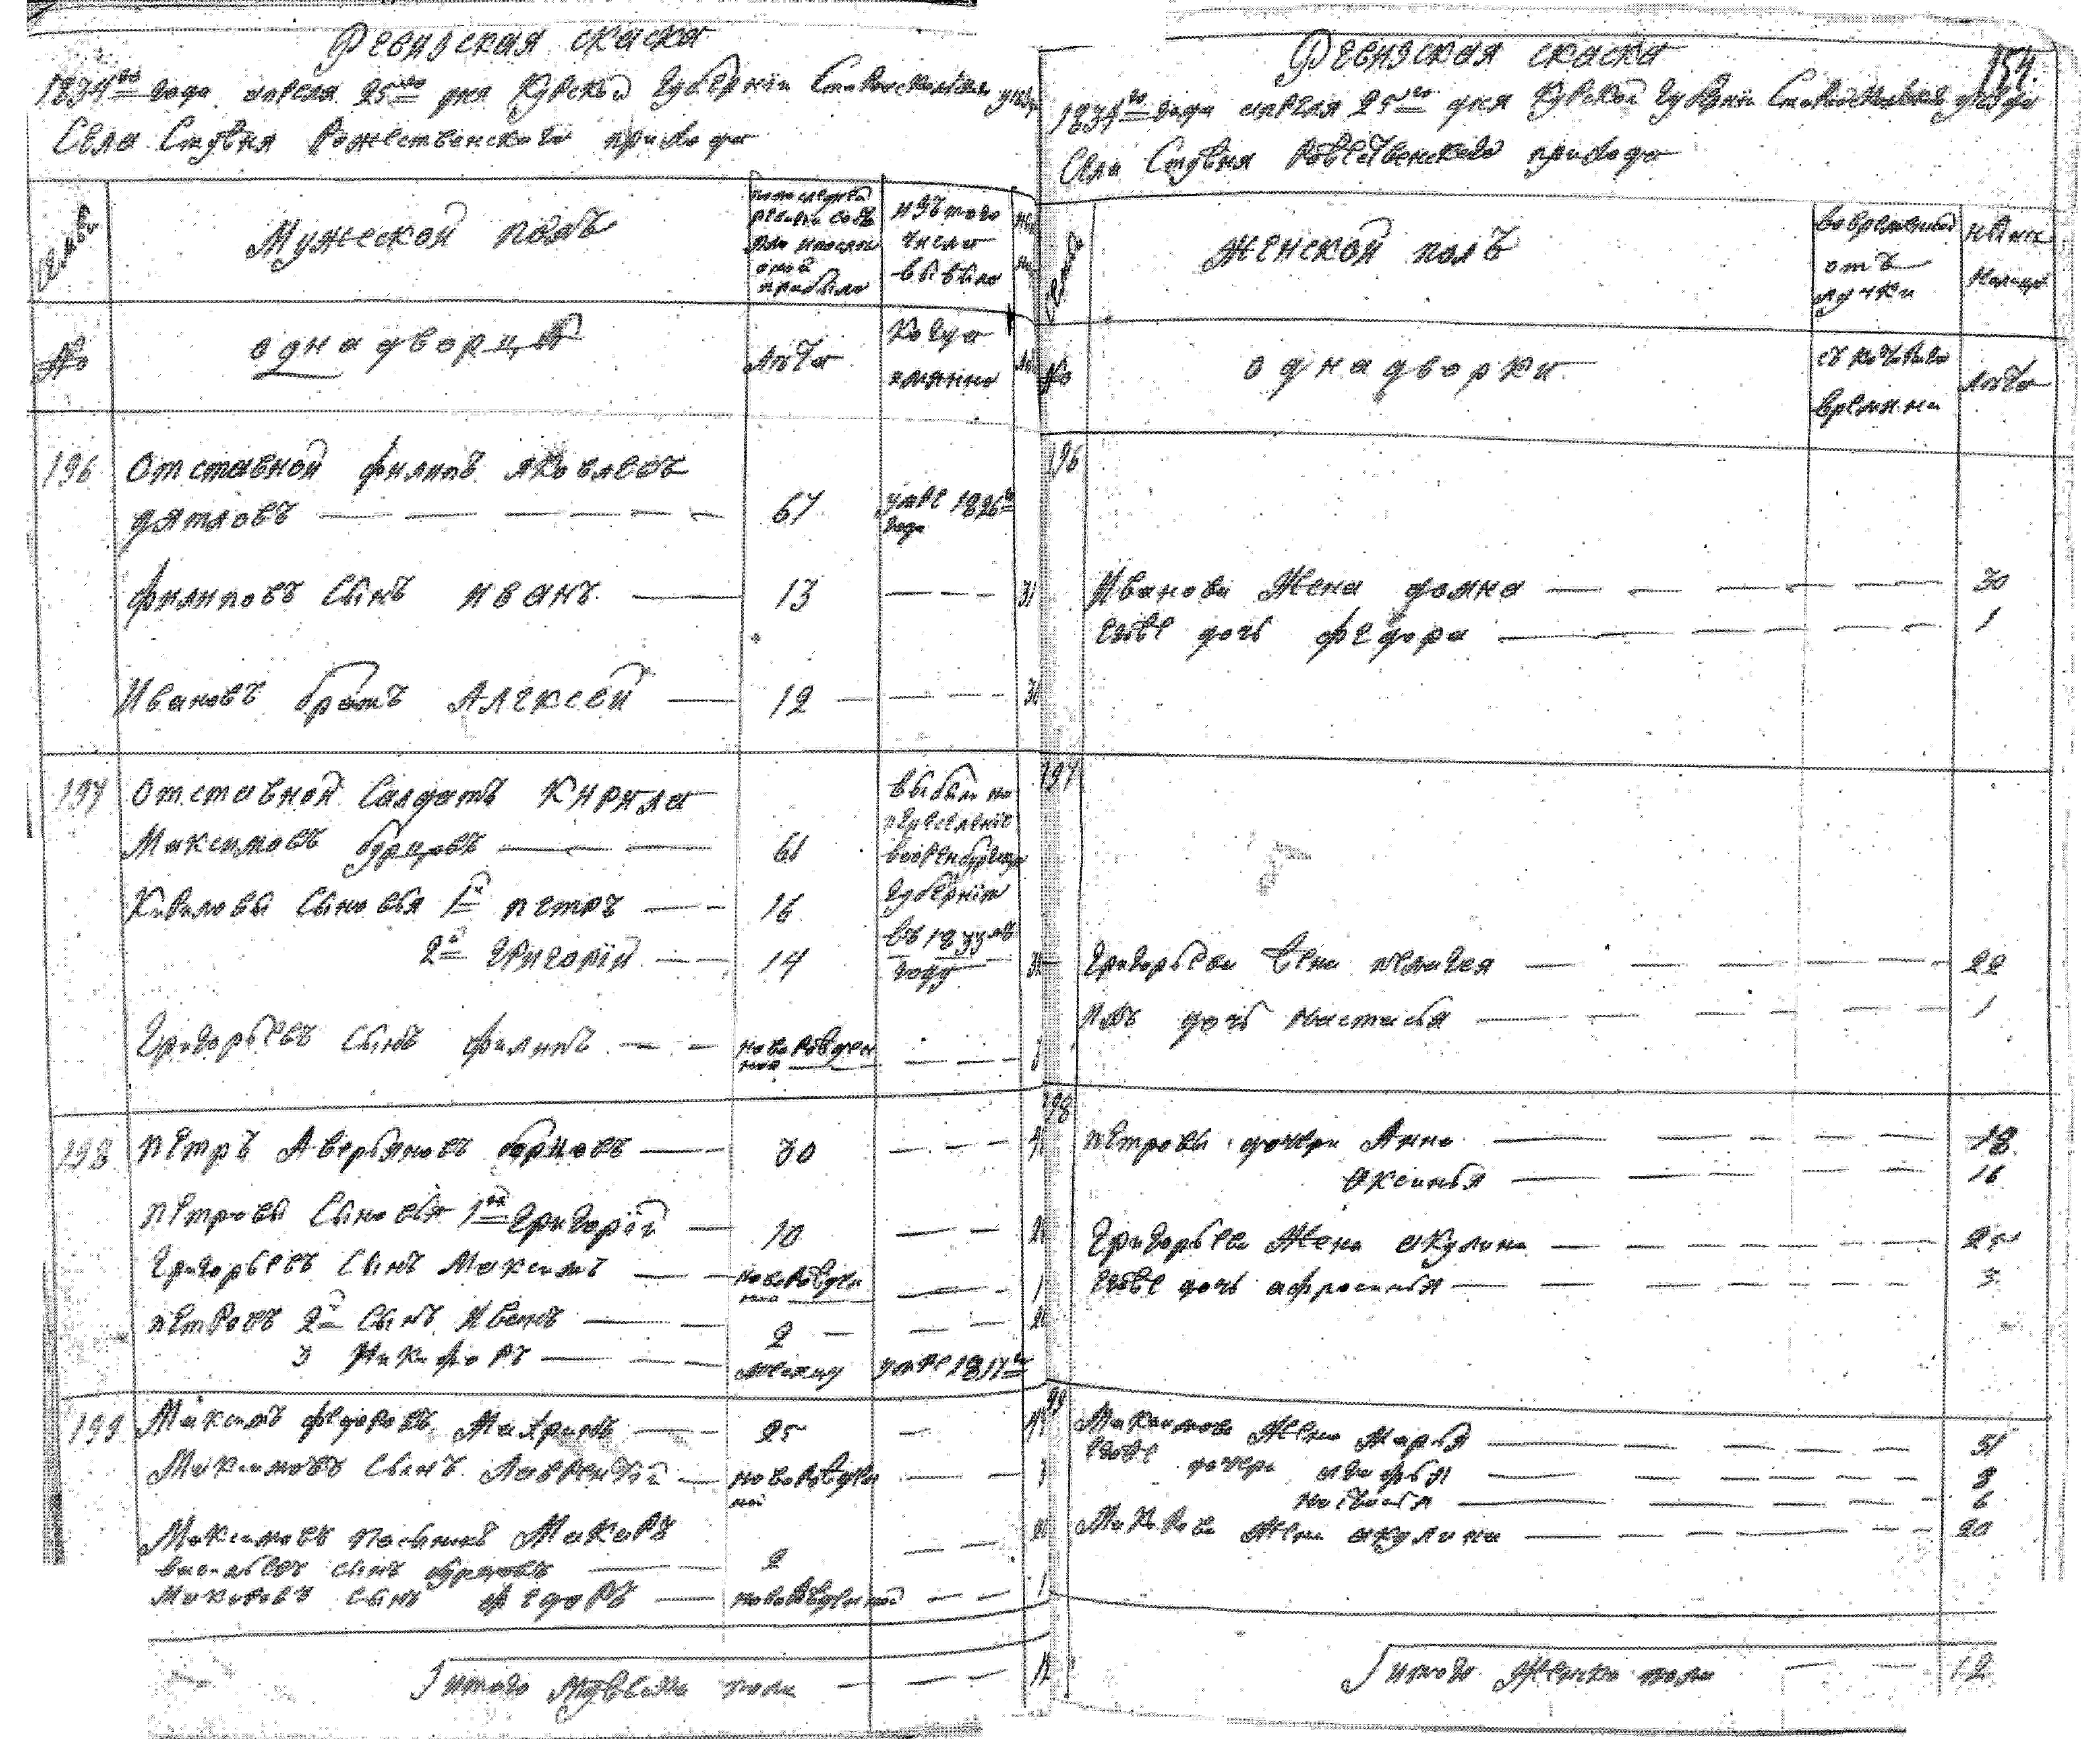 Ревизская скаска
1834го года апреля 25го дня Курской Губернiи Старооскольскаго уезда
Села Стубня Рожественского прихода
семьи
Мужеской полъ
попоследней
ревизiи состо
яло ипосле
оной
прибыло
изътого
числа
выбыло
№
однадворцы
лета
когда
имянно
196 Отставной филипъ яковлевъ
дятловъ 67 умре 1826го
года
филиповъ Сынъ иванъ 13 31
Ивановъ братъ Алексей 12 30
197 Отставной Салдатъ Кирила
Максимовъ бурцовъ 61
Кириловы Сыновья 1й петръ 16
2й Григорiй 14
выбыли на
переселенiе
вооренбургскую
Губернiю
въ 1833мъ
году
Григорьевъ Сынъ филипъ новорожден
ной 3
198 петръ Аверьяновъ борцовъ 30
петровы Сыновья 1ый Григорiй 10
Григорьевъ Сынъ Максимъ новорожден
ной 1
петровъ 2й Сынъ Иванъ 2
3 Никифоръ месяцу умре 1817го
199 Максимъ федоровъ Махринъ 25
Максимовъ Сынъ Лаврентiй новорожден
ной 3
Максимовъ пасынокъ Макаръ
васильевъ сынъ бурцовъ 2
Макаровъ сынъ федоръ новорожденной 1
итого Мужеска пола
Ревизская скаска
154.
1834го года апреля 25го дня Курской Губернiи Старооскольскаго уезда
Села Стубня Рожественского прихода
семьи
Женской полъ
вовременной
отъ
лучки
ныне
налицо
№
однадворки
съ котораго
времяни
лета
196
Иванова Жена домна 30
Егоже дочь федора 1
197
Григорьева жена пелагея 22
Ихъ дочь настасья 1
198 петровы дочери Анна 18
Аксинья 16
Григорьева Жена акулина 25
Егоже дочь афросинья 3
199 Максимова Жена Марья 51
Егоже дочери агафья 8
настасья 6
Макарова Жена акулина 20
итого Женска пола 12